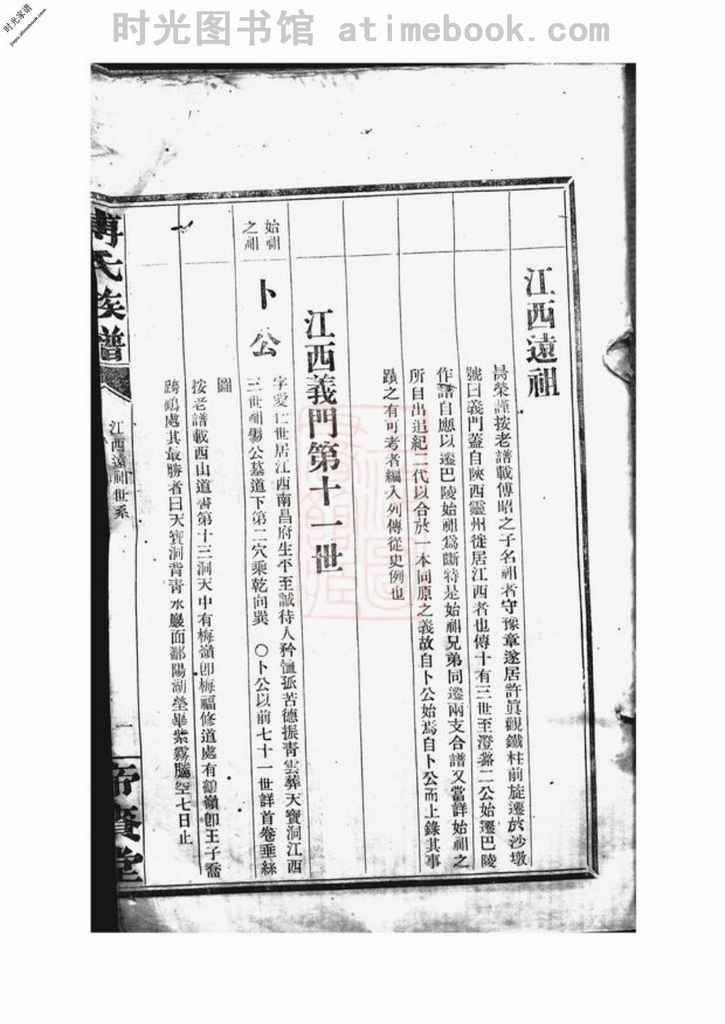 时光图书馆 atimebook.com
时光家谱
江西遠祖
昺榮謹按老譜載傅昭之子名祖者守豫章遂居許眞觀鐵柱前旋遷於沙墩
號曰義門蓋自陜西靈州徙居江西者也傳十有三世至澄潞二公始遷巴陵
作譜自應以遷巴陵始祖爲斷特是始祖兄弟同遷兩支合譜又當詳始祖之
所自出追紀二代以合於一本同原之義故自卜公始焉自卜公而上錄其事
蹟之有可考者編入列傳從史例也
江西義門第十一世
始祖之祖
卜公
字愛仁世居江西南昌府生平至誠待人矜恤孤苦德振青雲葬天寶洞江西
三世祖公墓道下第二穴乘乾向巽 〇卜公以前七十一世詳首卷垂絲
圖
按老譜載西山道書第十三洞天中有梅嶺卽梅福修道處有嶺卽王子喬
跨鶴處其最勝者曰天寶洞背青水巖面鄱陽湖塋畢紫霧騰空七日止
傅氏族譜
江西遠祖世系
一
帝賚堂